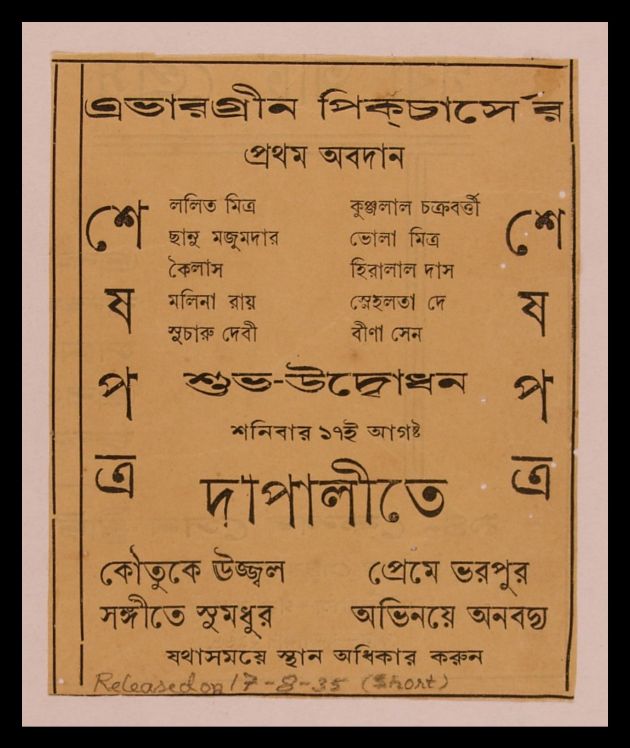 এভারগ্রীন পিক্‌চার্সে'র
প্রথম অবদান
শে
ষ
প
ত্র
ললিত মিত্র
ছানু মজুমদার
কৈলাস
মলিনা রায়
সুচারু দেবী
কুঞ্জলাল চক্রবর্ত্তী
ভোলা মিত্র
হিরালাল দাস
স্নেহলতা দে
বীণা সেন
শে
ষ
প
ত্র
শুভ-উদ্বোধন
শনিবার ১৭ই আগষ্ট
দীপালীতে
কৌতুকে উজ্জ্বল
প্রেমে ভরপুর
সঙ্গীতে সুমধুর
অভিনয়ে অনবদ্য
যথাসময়ে স্থান অধিকার করুন
Released on 17-8-35 (Short)